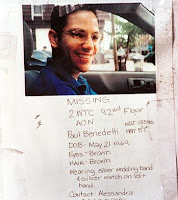 MISSING
2 WTC 92nd Floor
AON
Paul Benedetti
DOB - May 21 1969
Eyes - Brown
HAIR - Brown
Wearing silver wedding band
& silver watch on left
hand.
Contact Alessandra